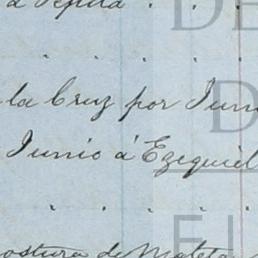 a Pepita . . .
la Cruz por Juni
Junio á Ezequiel
ostura de Maleta